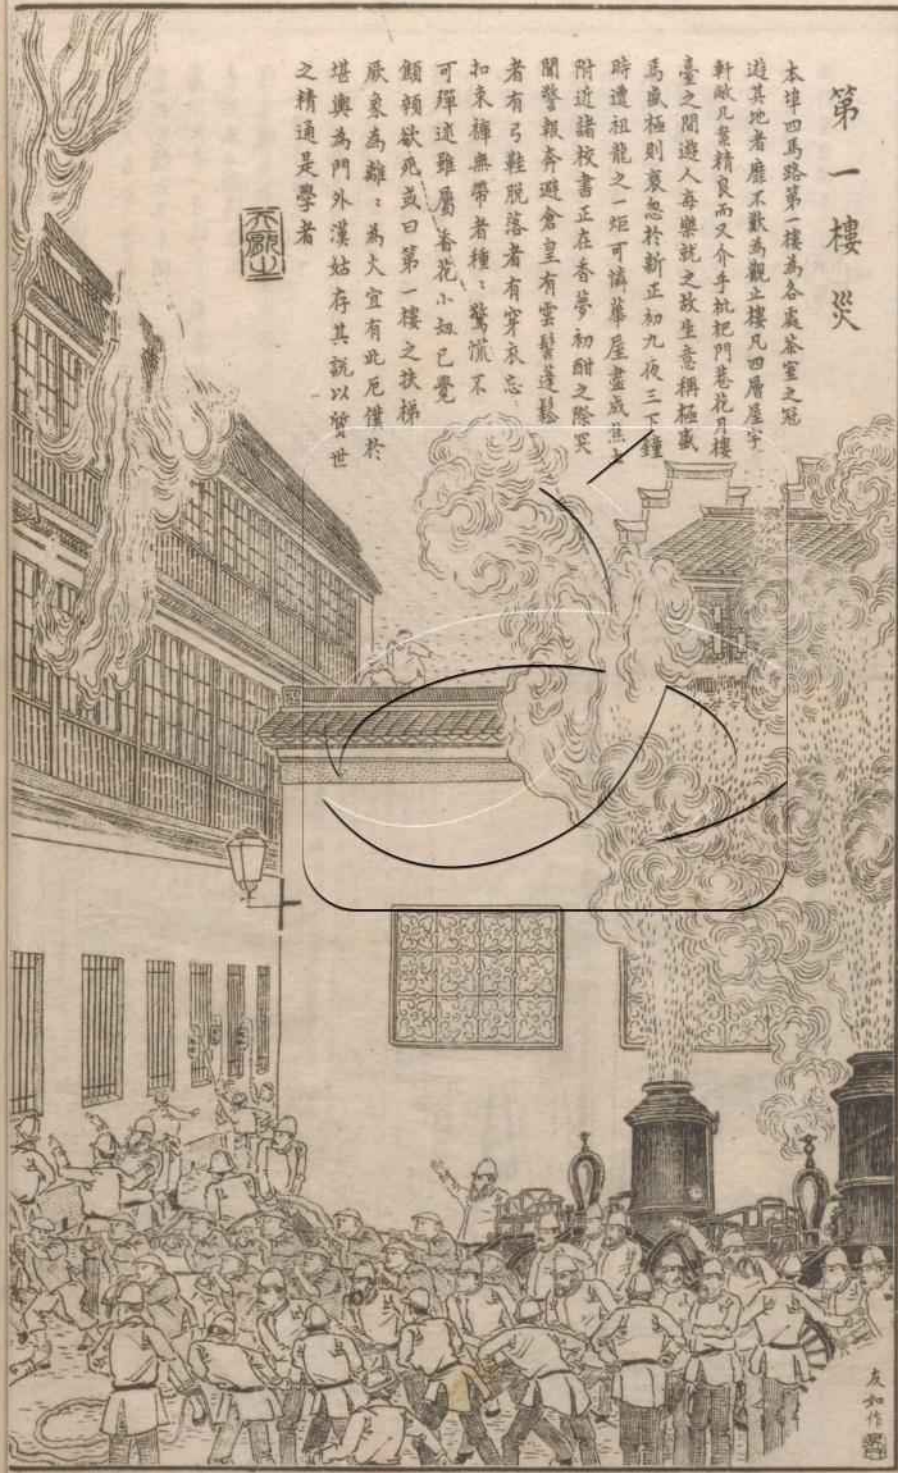 第一樓災
本埠四馬路第一樓為各處茶室之冠
遊其地者靡不歎為觀止樓凡四層屋宇
軒敞几案精良而又介乎枇杷門巷花月樓
臺之間遊人每樂就之故生意稱極盛
焉盛極則衰忽於新正初九夜三下鐘
時遭祖龍之一炬可憐華屋盡成焦土
附近諸校書正在香夢初酣之際突
聞警報奔避倉皇有雲鬢蓬鬆
者有弓鞋脫落者有穿衣忘
扣束褲無帶者種：驚慌不
可殫述雖屬香花小劫已覺
顛頓欲死或曰第一樓之扶梯
厥象為離：為火宜有此厄僕於
堪輿為門外漢姑存其說以質世
之精通是學者
友如作